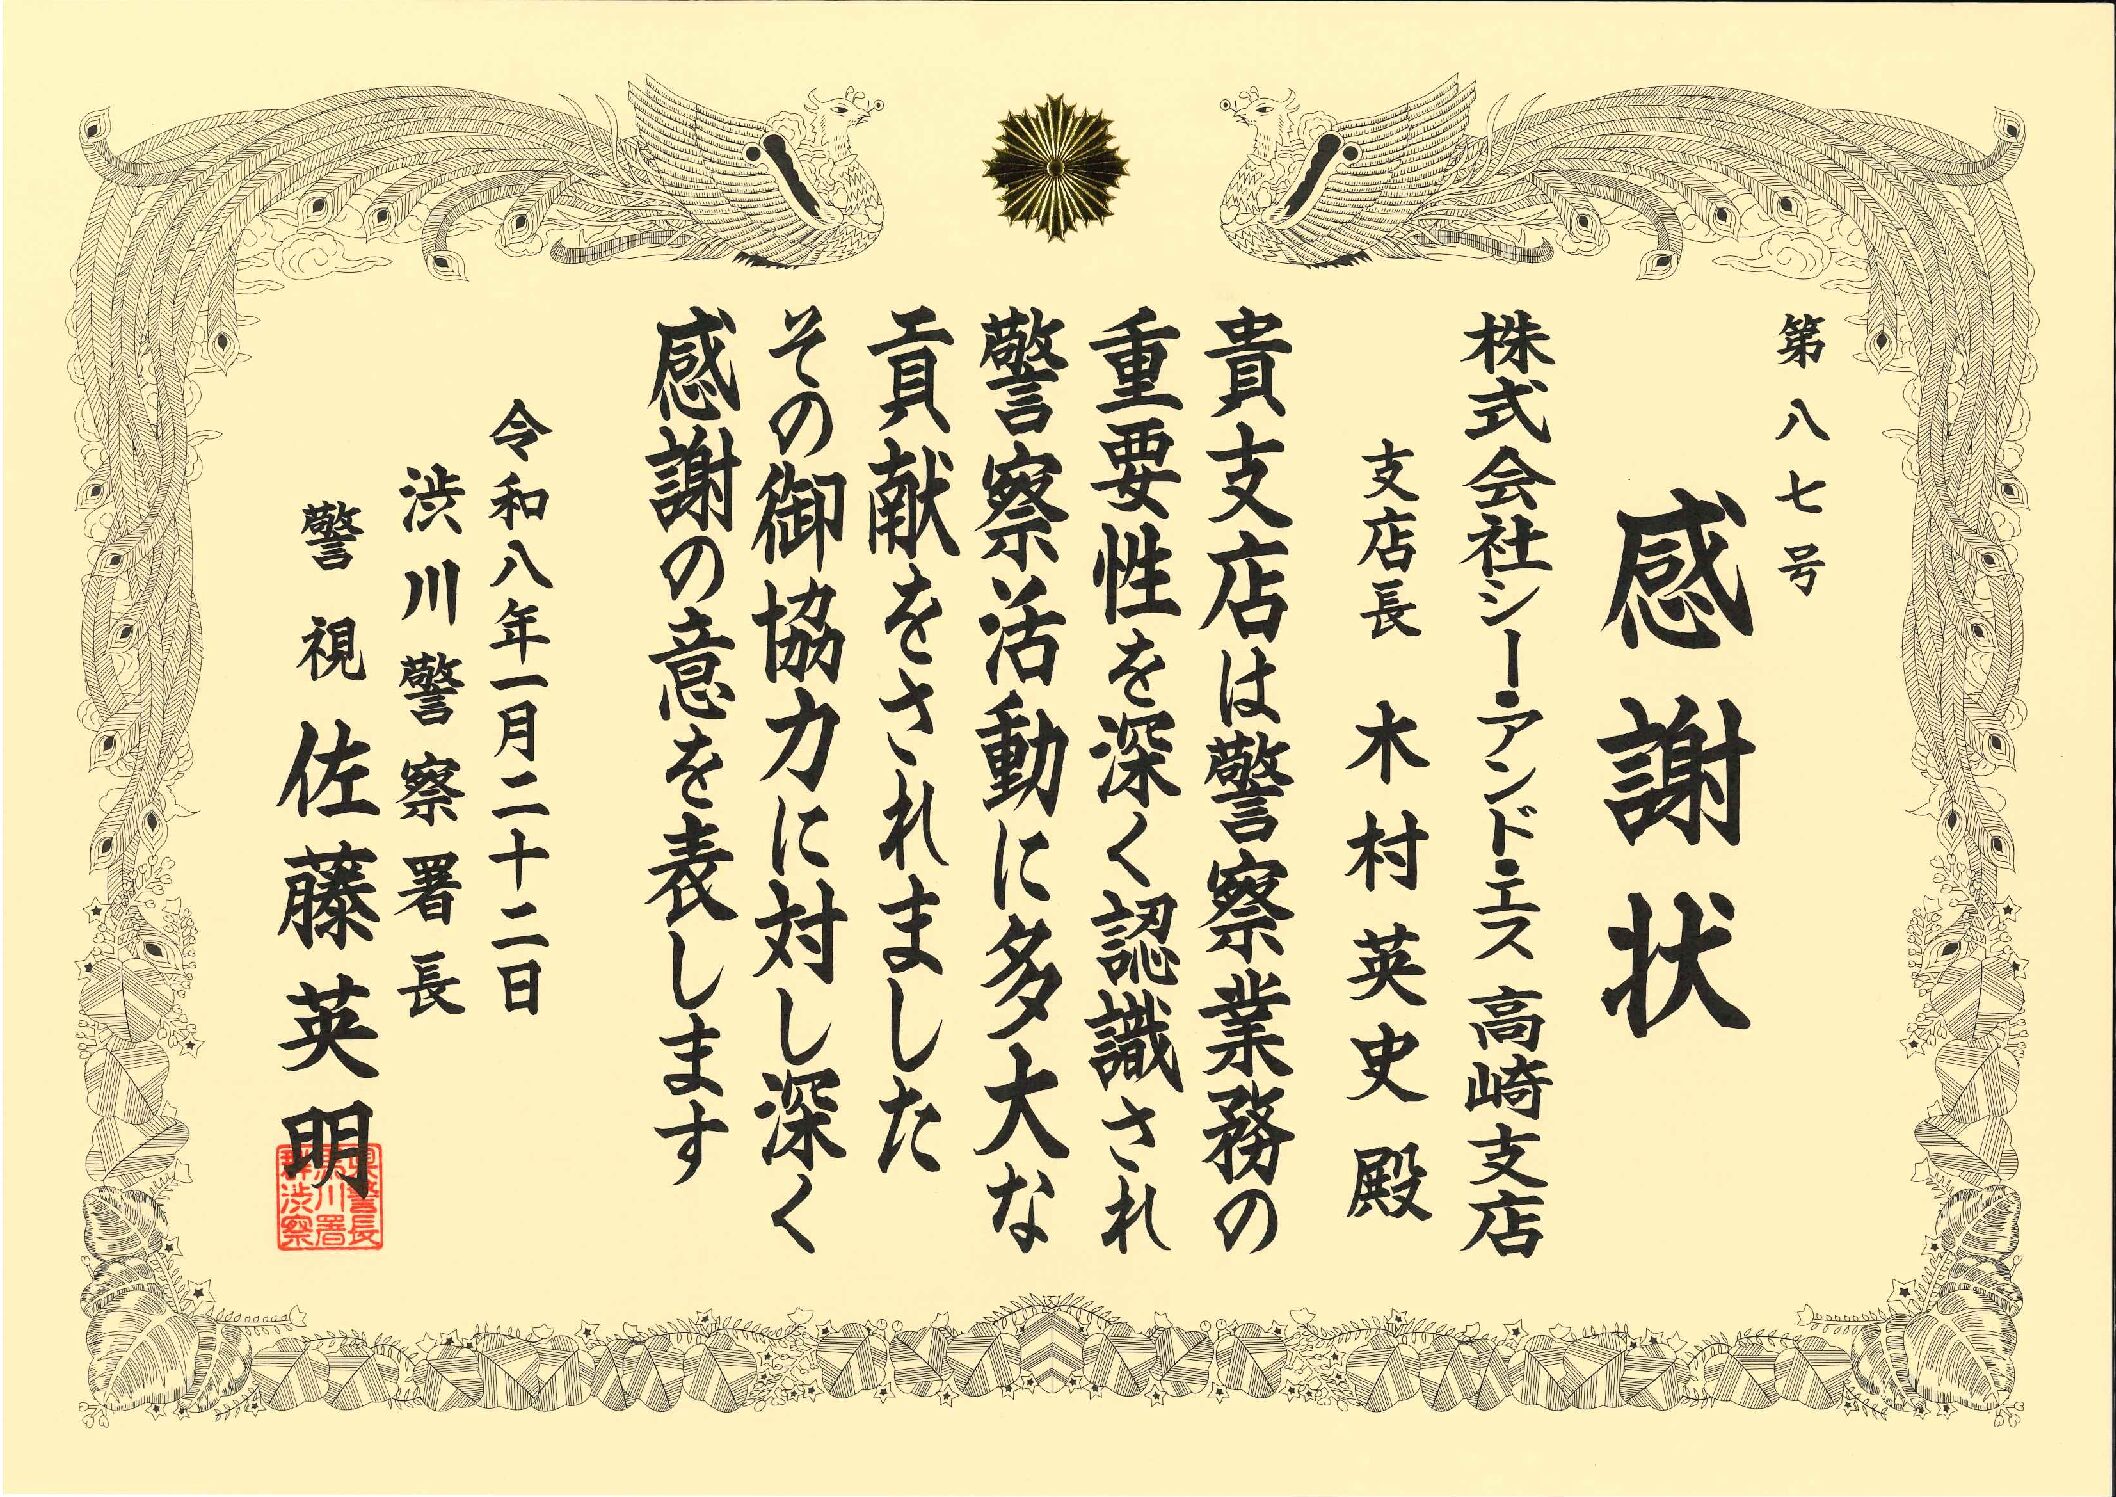 第八七号
感謝状
株式会社シー・アンド・エス 高崎支店
支店長 木村英史 殿
貴支店は警察業務の
重要性を深く認識され
警察活動に多大な
貢献をされました
その御協力に対し深く
感謝の意を表します
令和八年一月二十二日
渋川警察署長
警視 佐藤英明
群馬県
渋川警
察署長